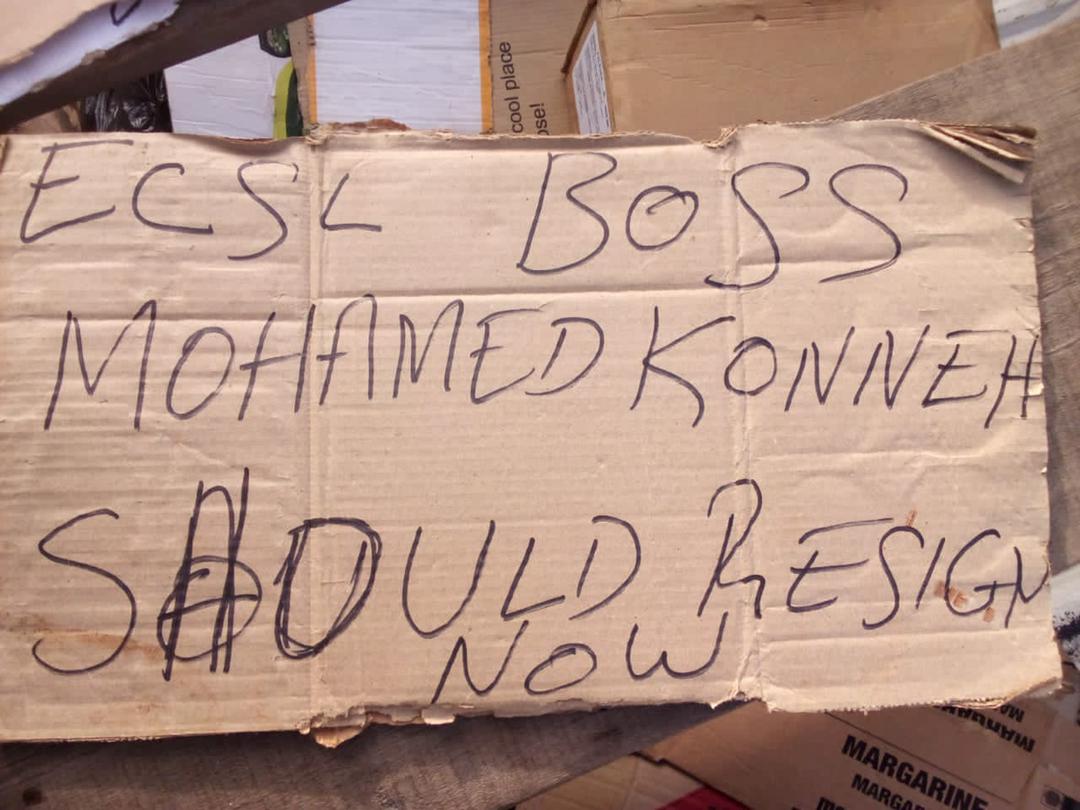 cool place
ose!
ECSL BOSS
MOHAMED KONNEH
SHOULD RESIGN
NOW
MARGARINE
MARGAR